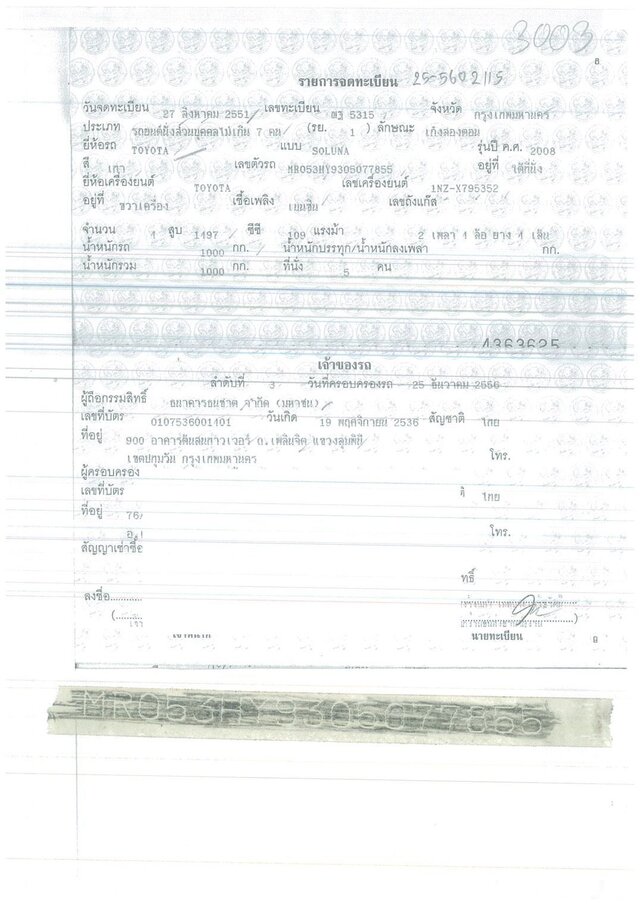 3003
8
รายการจดทะเบียน 25-5602115
วันจดทะเบียน 27 สิงหาคม 2551 เลขทะเบียน ฌฐ 5315 จังหวัด กรุงเทพมหานคร
ประเภท รถยนต์นั่งส่วนบุคคลไม่เกิน 7 คน (รย. 1 ) ลักษณะ เก๋งสองตอน
ยี่ห้อรถ TOYOTA แบบ SOLUNA รุ่นปี ค.ศ. 2008
สี เทา เลขตัวรถ MR053HY9305077855 อยู่ที่ ใต้ที่นั่ง
ยี่ห้อเครื่องยนต์ TOYOTA เลขเครื่องยนต์ 1NZ-X795352
อยู่ที่ ขวาเครื่อง เชื้อเพลิง เบนซิน เลขถังแก๊ส
จำนวน 4 สูบ 1497 ซีซี 109 แรงม้า 2 เพลา 4 ล้อ ยาง 4 เส้น
น้ำหนักรถ 1000 กก. น้ำหนักบรรทุก/น้ำหนักลงเพลา กก.
น้ำหนักรวม 1000 กก. ที่นั่ง 5 คน
4363625
เจ้าของรถ
ลำดับที่ 3 วันที่ครอบครองรถ 25 ธันวาคม 2556
ผู้ถือกรรมสิทธิ์ ธนาคารธนชาต จำกัด (มหาชน)
เลขที่บัตร 0107536001401 วันเกิด 19 พฤศจิกายน 2536 สัญชาติ ไทย
ที่อยู่ 900 อาคารต้นสนทาวเวอร์ ถ.เพลินจิต แขวงลุมพินี
เขตปทุมวัน กรุงเทพมหานคร โทร.
ผู้ครอบครอง
เลขที่บัตร ติ ไทย
ที่อยู่ 76/
อ. โทร.
สัญญาเช่าซื้อ
ทธิ์
ลงชื่อ
นายทะเบียน
MR053HY9305077855